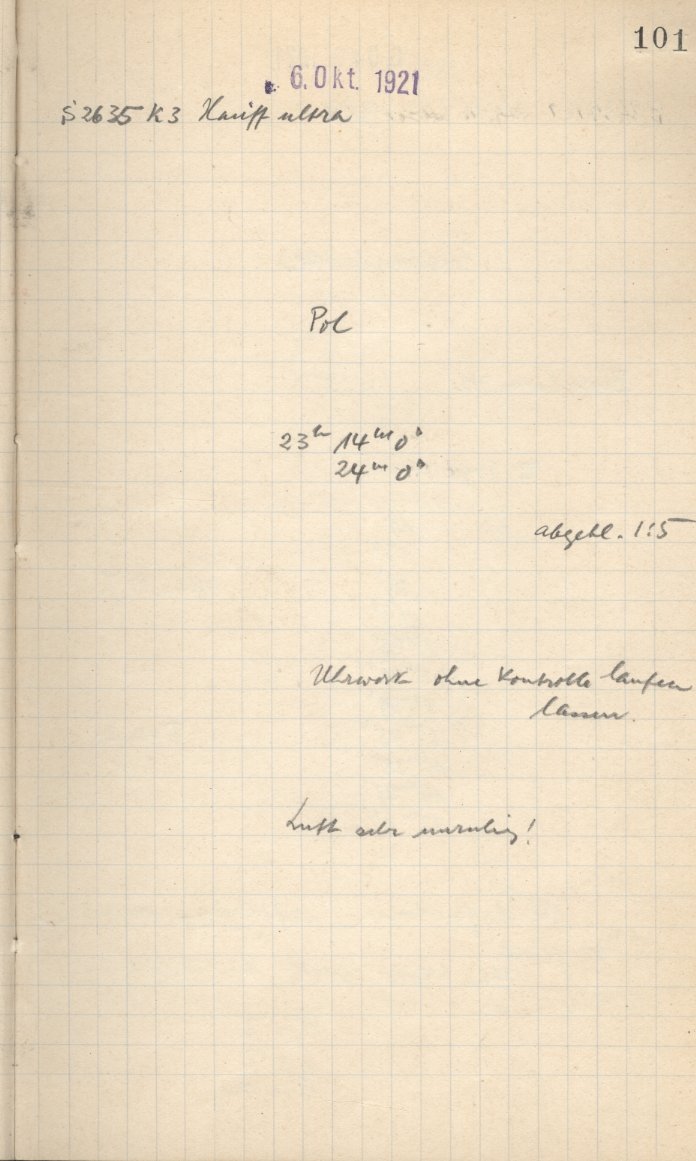 101
6. Okt. 1921
S 2635 K3 Hauff ultra
Pol
23h 14m 0s
24m 0s
abgebl. 1:5
Uhrwerk ohne Kontrolle laufen
lassen.
Luft sehr unruhig!